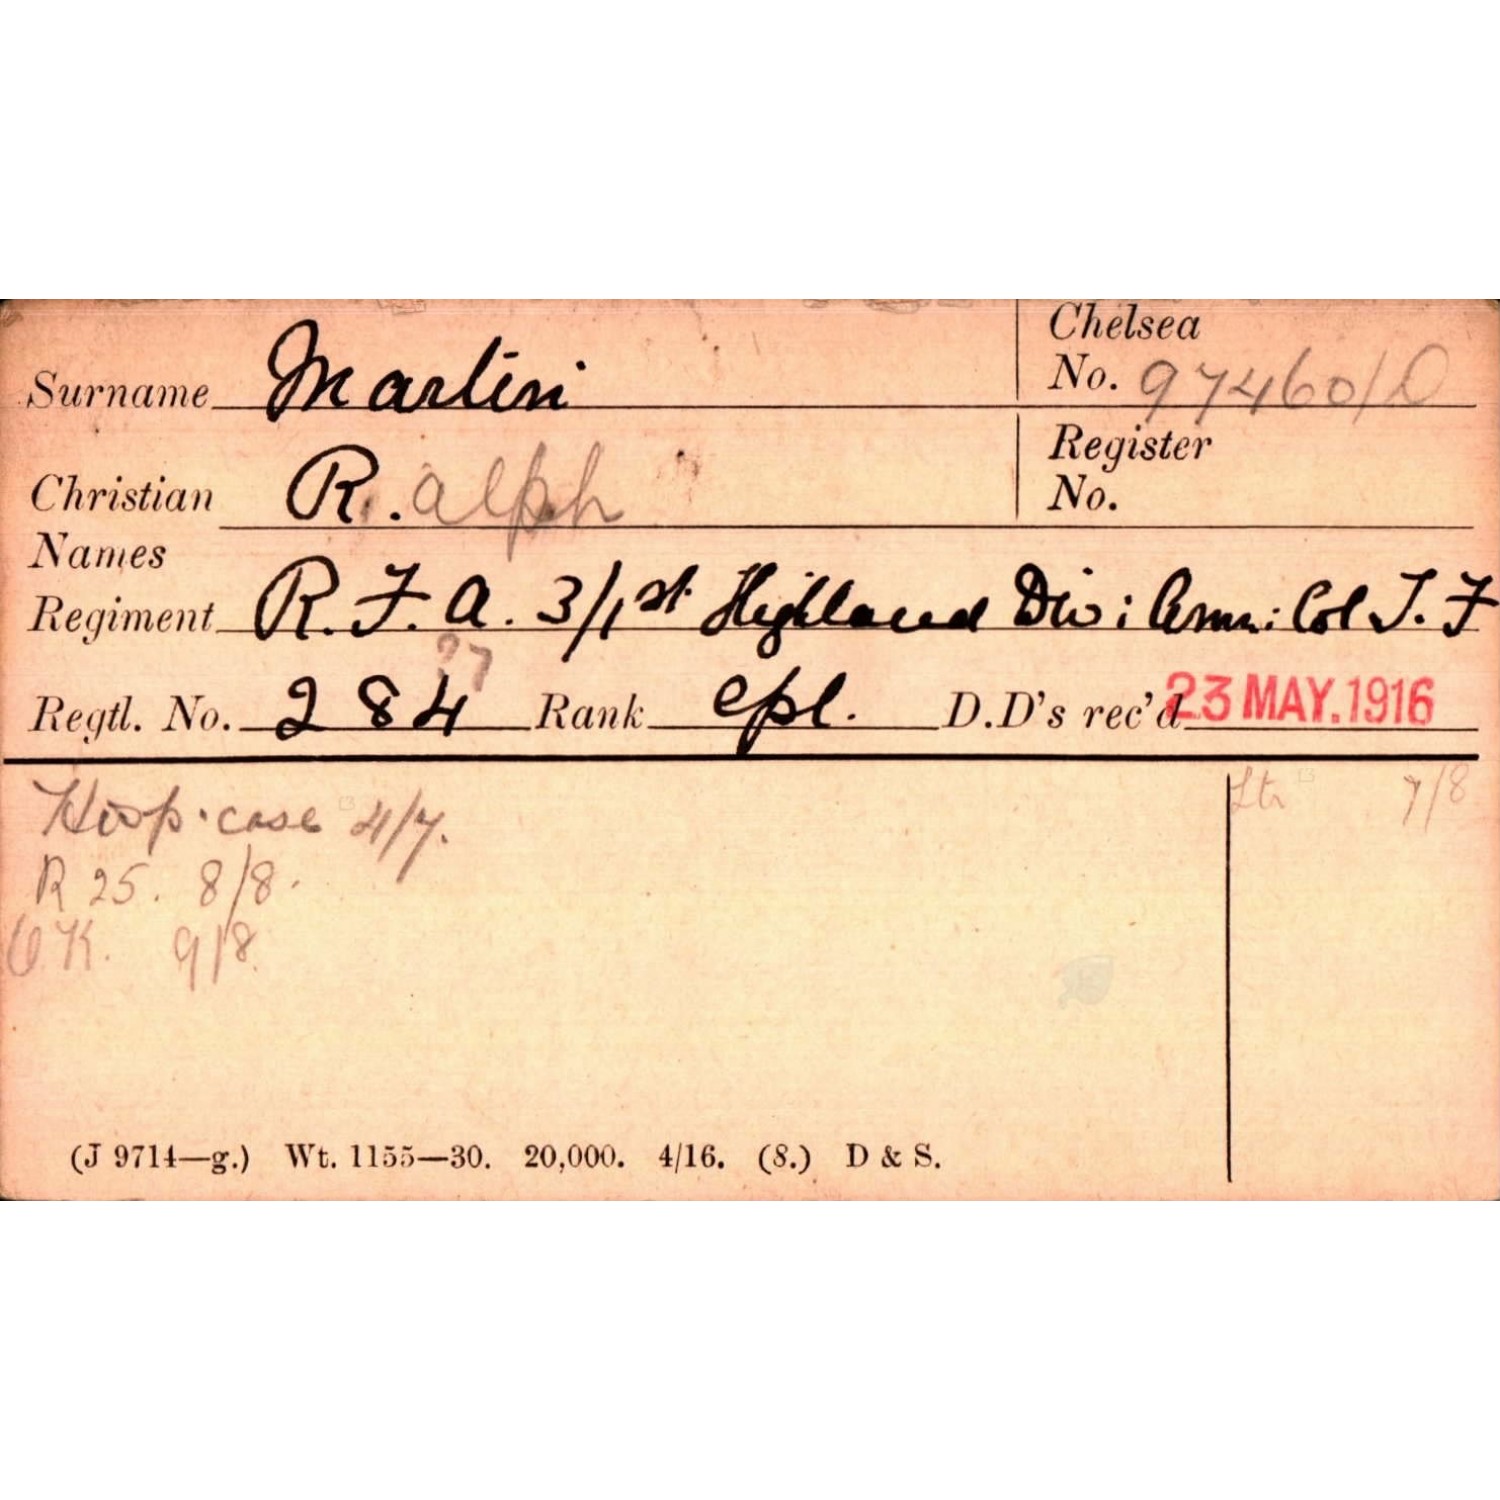 Surname Martin
Chelsea
No. 97460/D
Christian
Names R. alph
Register
No.
Regiment R. F. A. 3/1st Highland Div: Amn: Col T. F
?7
Regtl. No. 284 Rank Cpl. D.D's rec'd 23 MAY. 1916
Hosp. case 4/7.
Ltr 7/8
R 25. 8/8.
O.K. 9/8.
(J 9714—g.) Wt. 1155—30. 20,000. 4/16. (S.) D & S.